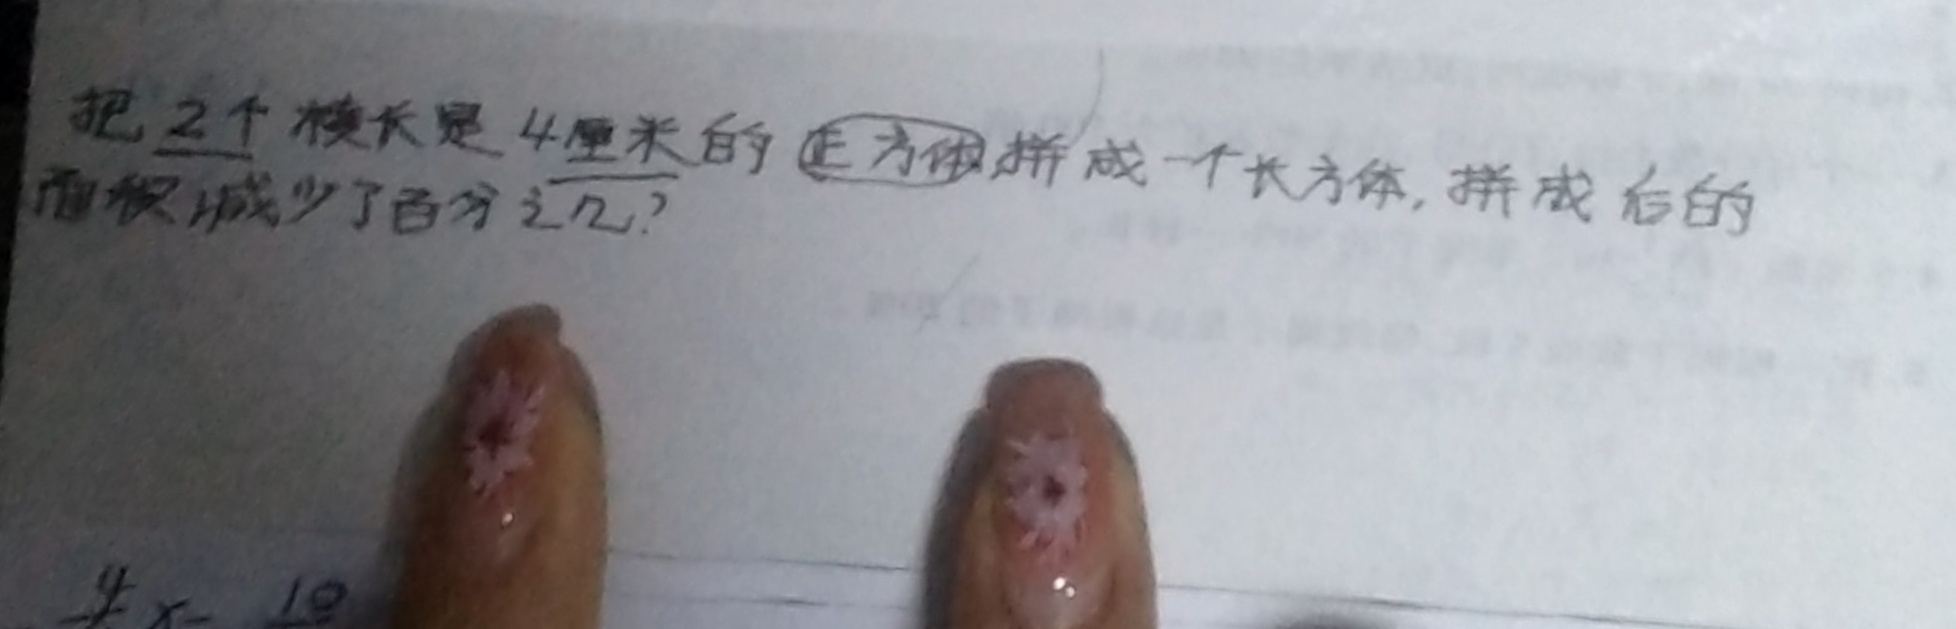 把2个棱长是4厘米的正方体拼成一个长方体,拼成后的
面积减少了百分之几?
4 x 10